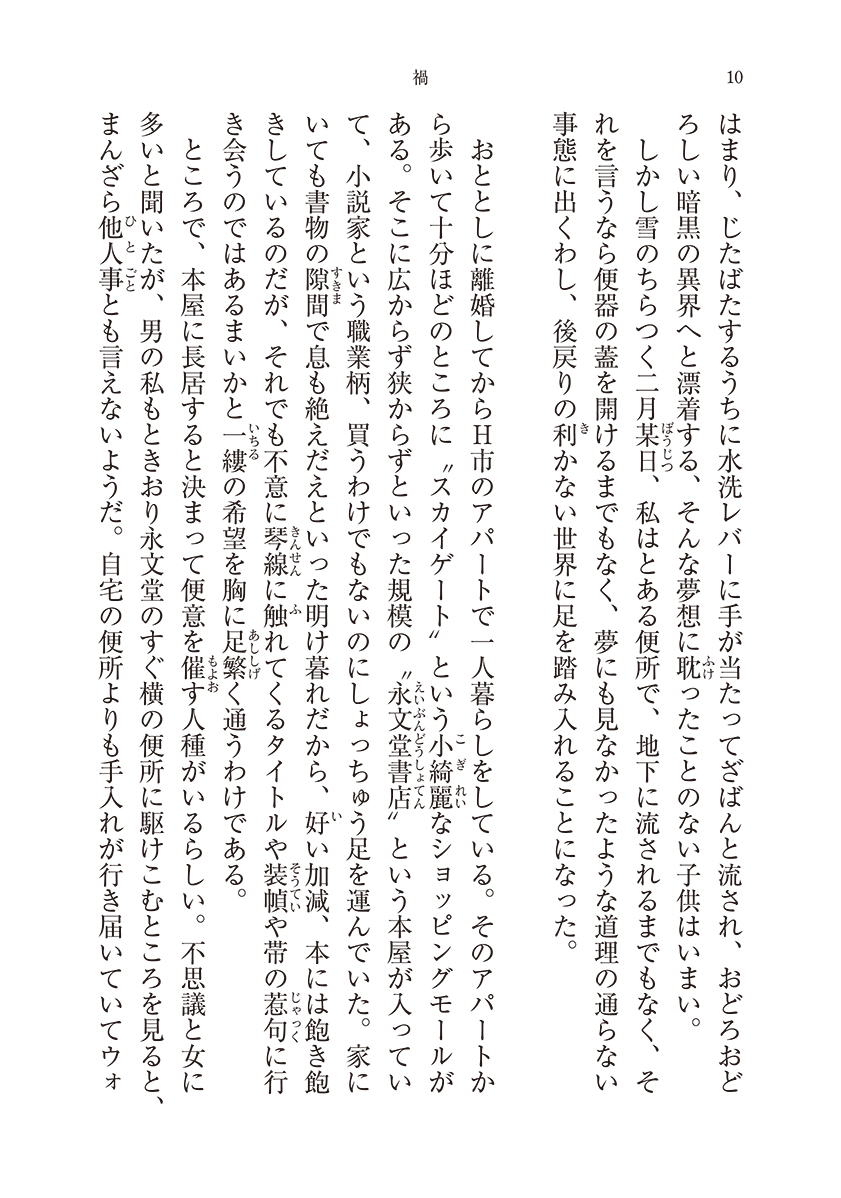 10
禍
はまり、じたばたするうちに水洗レバーに手が当たってざばんと流され、おどろおど
ろしい暗黒の異界へと漂着する、そんな夢想に耽ったことのない子供はいまい。
しかし雪のちらつく二月某日、私はとある便所で、地下に流されるまでもなく、そ
れを言うなら便器の蓋を開けるまでもなく、夢にも見なかったような道理の通らない
事態に出くわし、後戻りの利かない世界に足を踏み入れることになった。
おととしに離婚してからＨ市のアパートで一人暮らしをしている。そのアパートか
ら歩いて十分ほどのところに〝スカイゲート〟という小綺麗なショッピングモールが
ある。そこに広からず狭からずといった規模の〝永文堂書店〟という本屋が入ってい
て、小説家という職業柄、買うわけでもないのにしょっちゅう足を運んでいた。家に
いても書物の隙間で息も絶えだえといった明け暮れだから、好い加減、本には飽き飽
きしているのだが、それでも不意に琴線に触れてくるタイトルや装幀や帯の惹句に行
き会うのではあるまいかと一縷の希望を胸に足繁く通うわけである。
ところで、本屋に長居すると決まって便意を催す人種がいるらしい。不思議と女に
多いと聞いたが、男の私もときおり永文堂のすぐ横の便所に駆けこむところを見ると、
まんざら他人事とも言えないようだ。自宅の便所よりも手入れが行き届いていてウォ